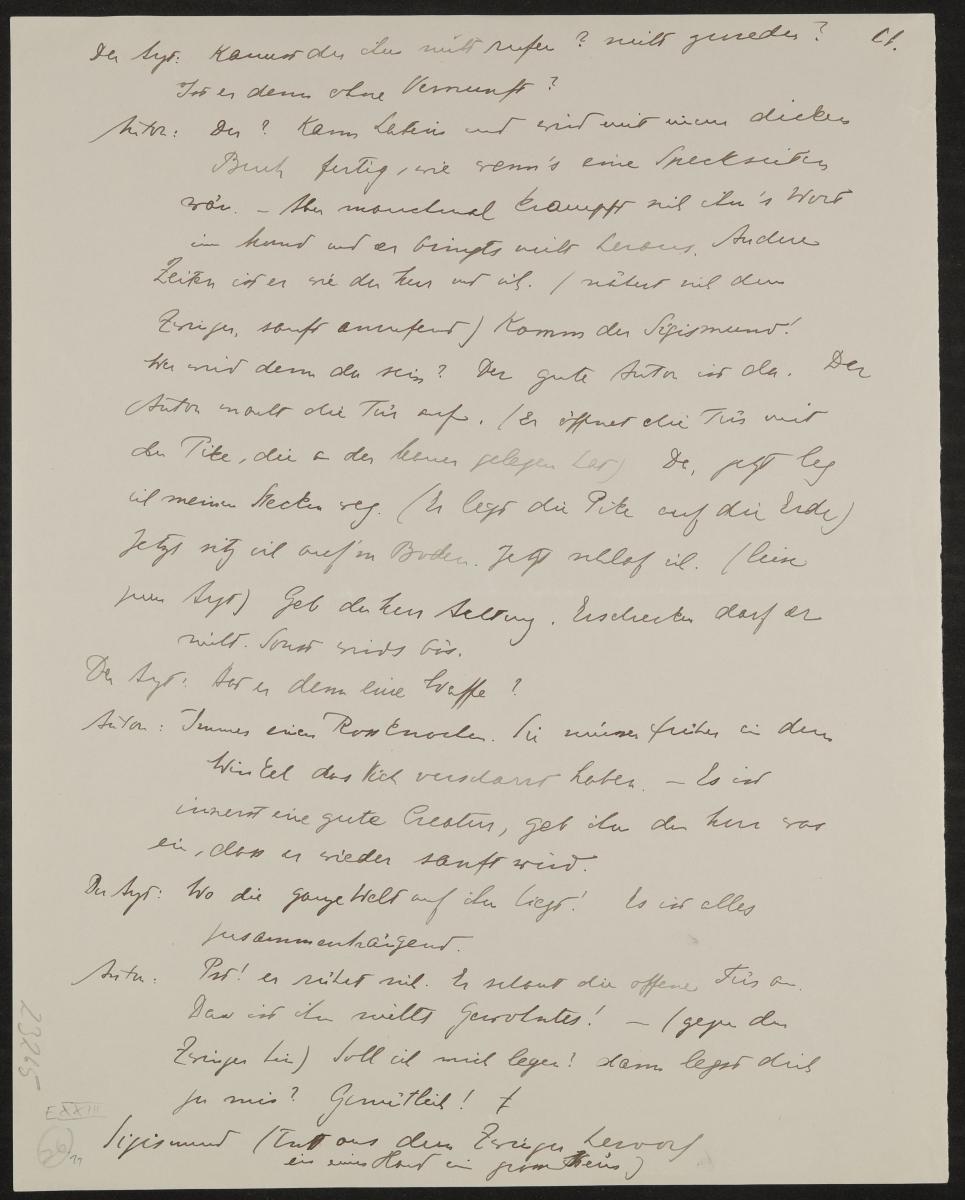 11.
Der Arzt: Kannst du ihn nicht rufen? nicht zureden?
Ist er denn ohne Vernunft?
Anton: Der? Kann Latein und wird mit einem dicken
Buch fertig, wie wenn's eine Speckseiten
wär. – Aber manchmal krampft sich ihm's Wort
im Mund und er bringts nicht heraus. Andere
Zeiten ist er wie der Herr und ich. (nähert sich dem
Zwinger, sanft anrufend) Komm du Sigismund!
Wer wird denn da sein? Der gute Anton ist da. Der
Anton macht die Tür auf. (Er öffnet die Tür mit
der Pike, die an der Mauer gelegen hat) Da, jetzt leg
ich meinen Stecken weg. (Er legt die Pike auf die Erde)
Jetzt sitz ich auf'm Boden. Jetzt schlaf ich. (leise
zum Arzt) Geb der Herr Achtung. Erschrecken darf er
nicht. Sonst wirds bös.
Der Arzt: Hat er denn eine Waffe?
Anton: Immer einen Rossknochen. Sie müssen früher in dem
Winkel das Vieh verscharrt haben. – Es ist
innerst eine gute Creatur, geb ihm der Herr was
ein, dass er wieder sanft wird.
Der Arzt: Wo die ganze Welt auf ihm liegt! Es ist alles
zusammenhängend.
Anton: Pst! er rührt sich. Er schaut die offene Tür an.
Das ist ihm nichts Gewohntes! – (gegen den
Zwinger hin) Soll ich mich legen? dann legst dich
zu mir? Gemütlich!
Sigismund (Tritt aus dem Zwinger hervor
in einer Hand ein
23245
EXXIII